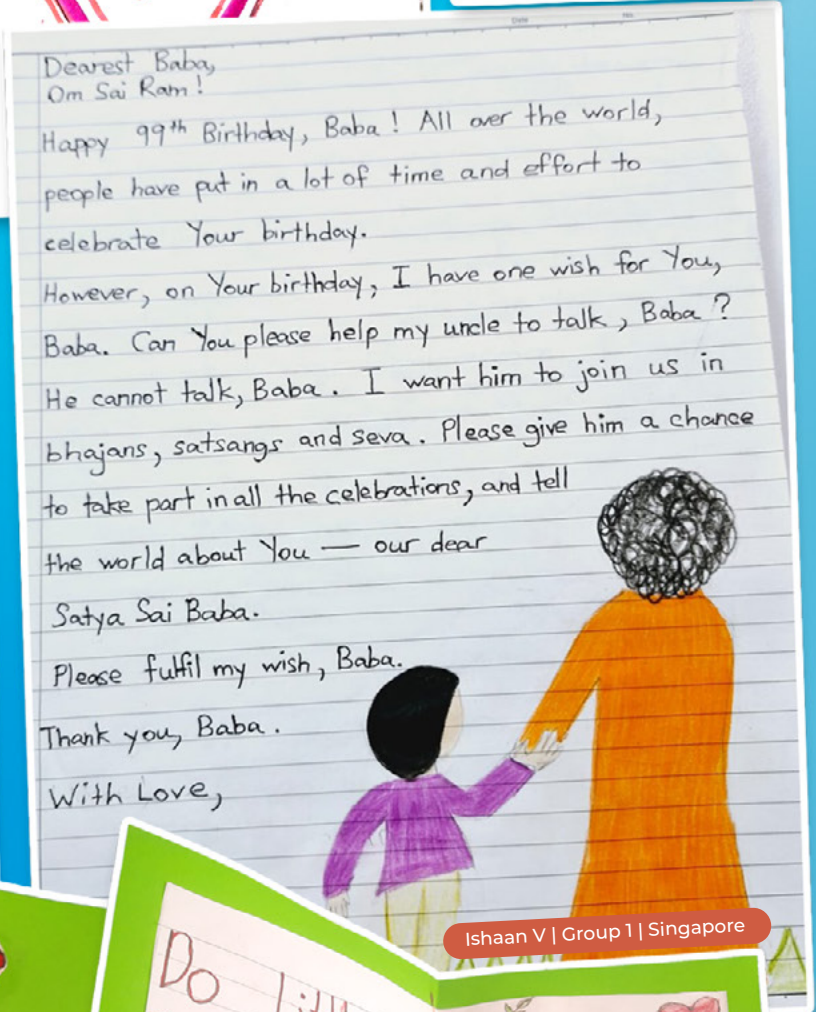 Date
No.
Dearest Baba,
Om Sai Ram!
Happy 99th Birthday, Baba! All over the world,
people have put in a lot of time and effort to
celebrate Your birthday.
However, on Your birthday, I have one wish for You,
Baba. Can You please help my uncle to talk, Baba?
He cannot talk, Baba. I want him to join us in
bhajans, satsangs and seva. Please give him a chance
to take part in all the celebrations, and tell
the world about You — our dear
Satya Sai Baba.
Please fulfil my wish, Baba.
Thank you, Baba.
With Love,
Ishaan V | Group 1 | Singapore
Do